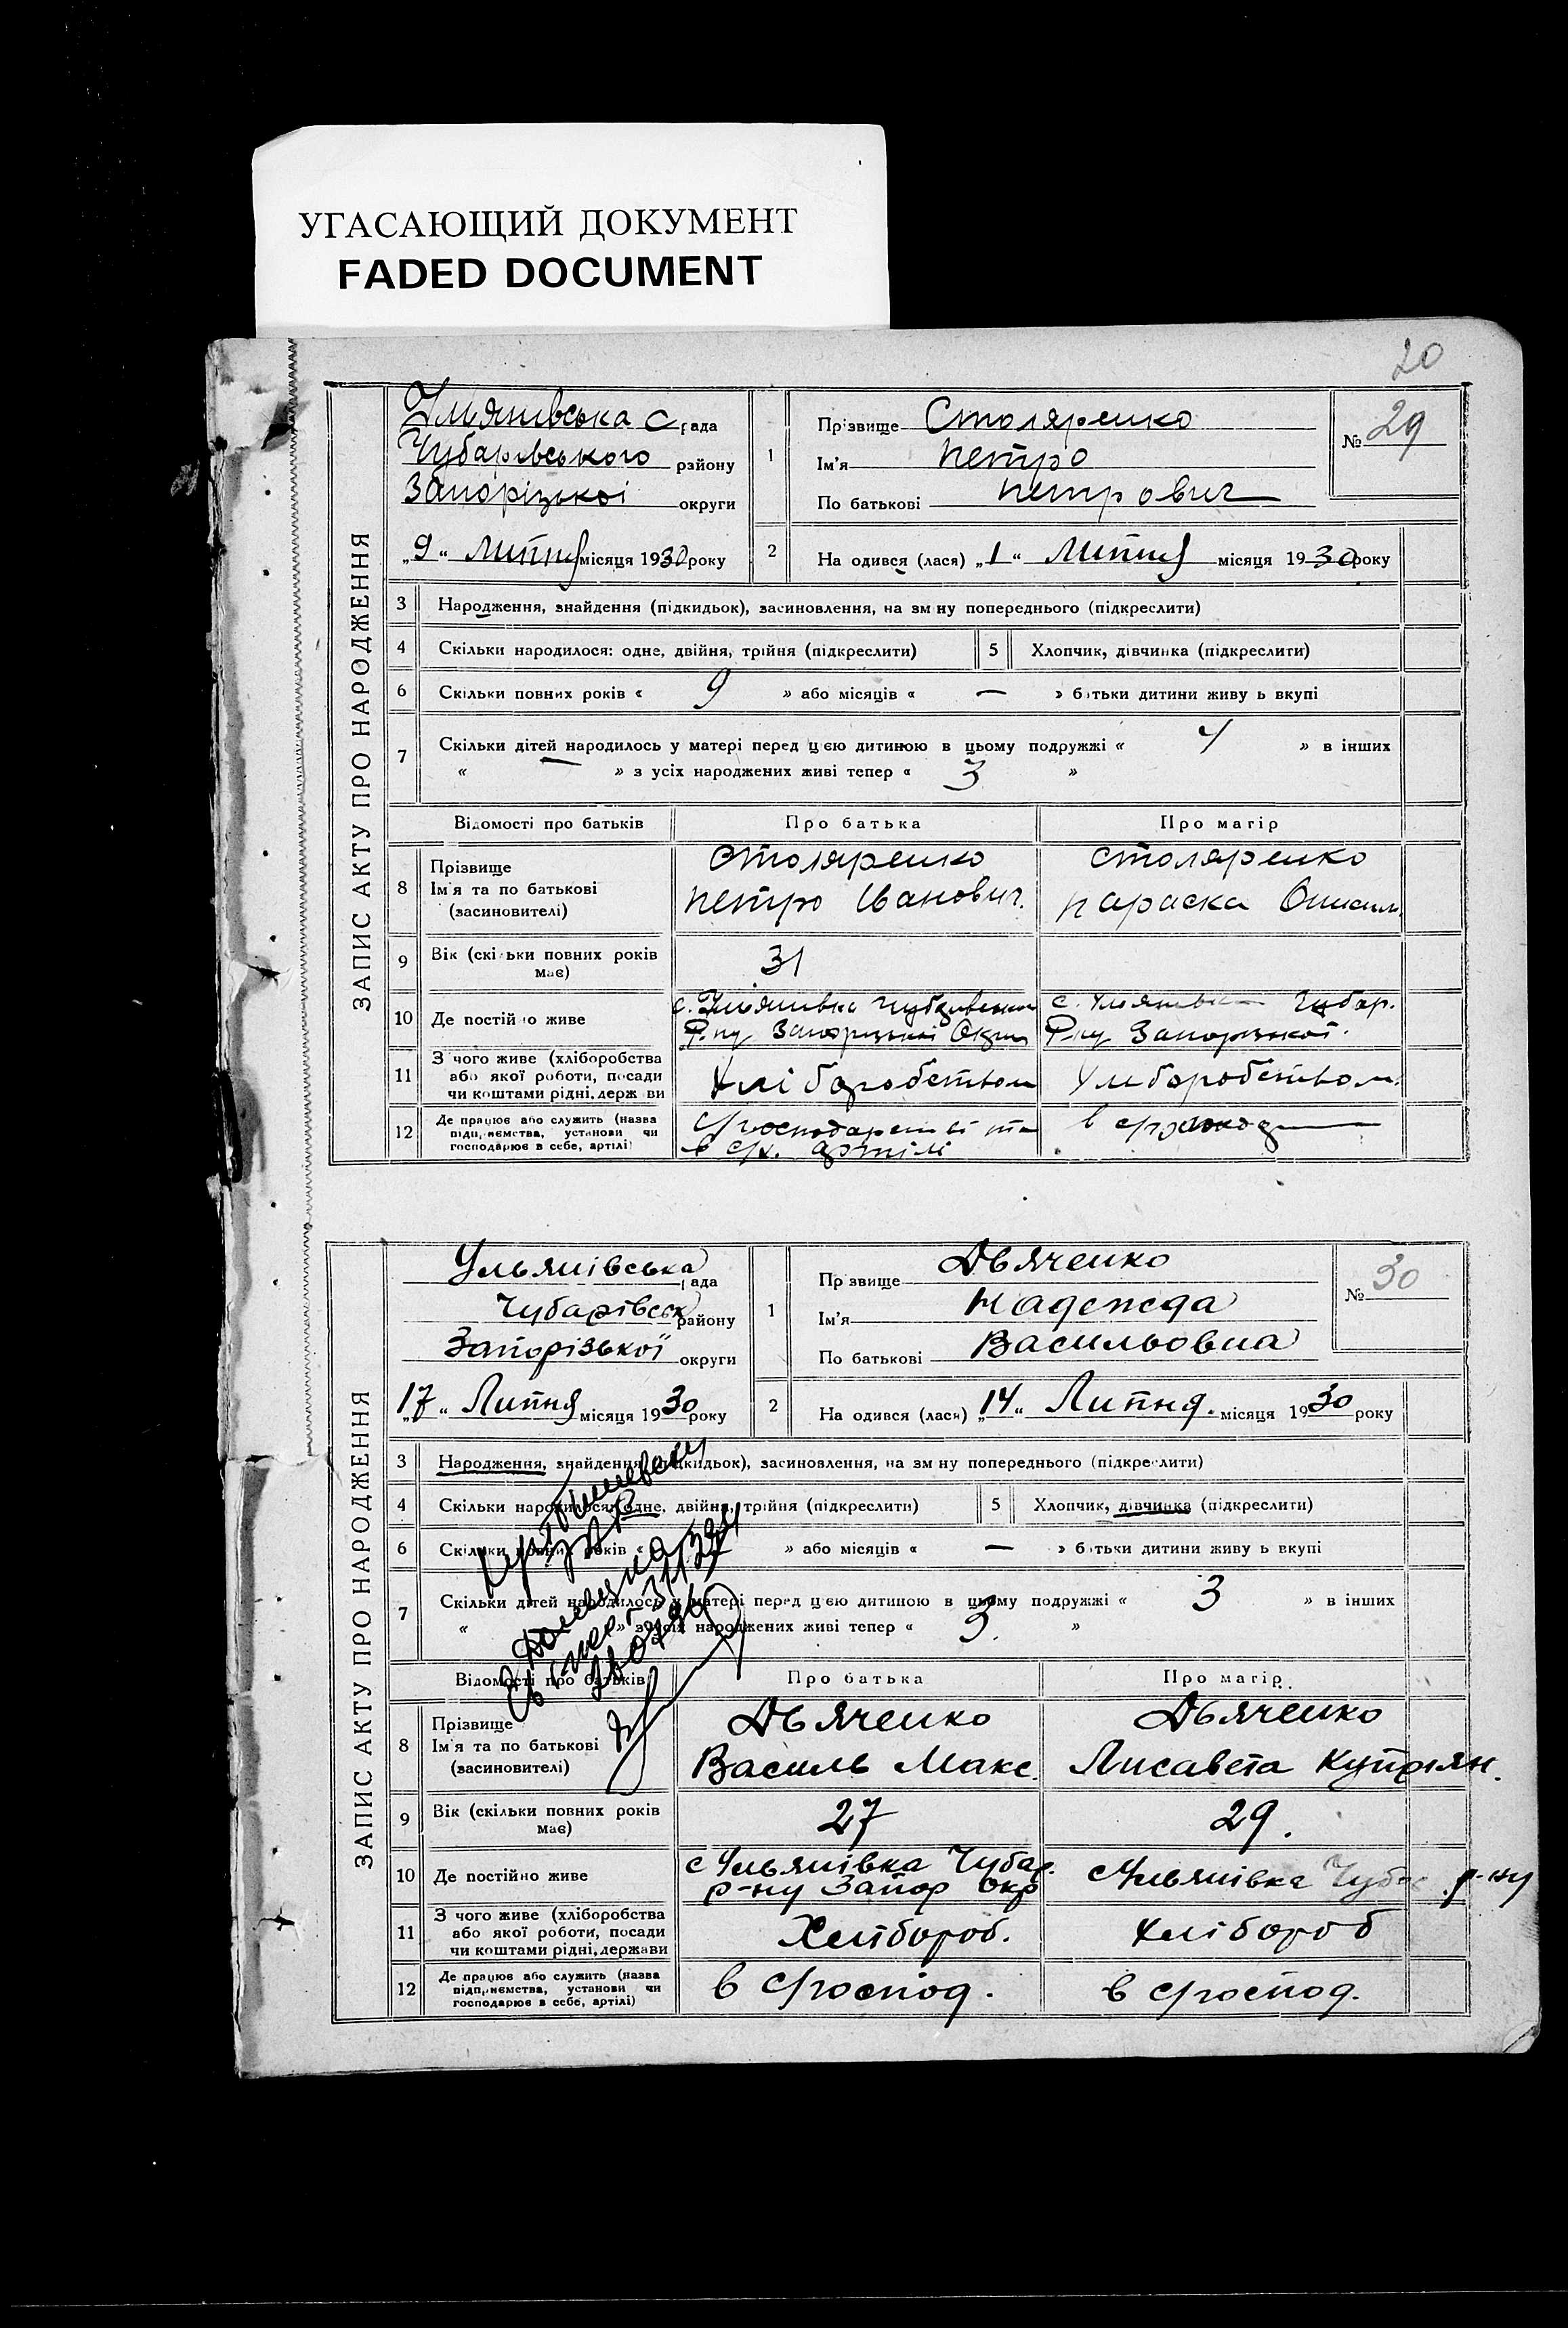 УГАСАЮЩИЙ ДОКУМЕНТ
FADED DOCUMENT
20
ЗАПИС АКТУ ПРО НАРОДЖЕННЯ
Ульянівська с рада
Чубарівського району
Запорізької округи
„9“ Липня місяця 1930 року
1
Прізвище Столяренко
Ім'я Петро
По батькові Петрович
№ 29
2
На одився (лася) „1“ Липня місяця 1930 року
3 Народження, знайдення (підкидьок), засиновлення, на зм ну попереднього (підкреслити)
4 Скільки народилося: одне, двійня, трійня (підкреслити) 5 Хлопчик, дівчинка (підкреслити)
6 Скільки повних років « 9 » або місяців « — » батьки дитини живу ь вкупі
7 Скільки дітей народилось у матері перед цією дитиною в цьому подружжі « 4 » в інших
« — » з усіх народжених живі тепер « 3 »
Відомості про батьків Про батька Про матір
8 Прізвище
Ім'я та по батькові
(засиновителі)
Столяренко
Петро Іванович.
Столяренко
Параска
9 Вік (скільки повних років
має)
31
10 Де постійно живе
с. Ульянівка
Р-ну Запорізької Округи
с. Ульянівка Чубар.
Р-ну Запорізької.
11 З чого живе (хліборобства
або якої роботи, посади
чи коштами рідні, держ ви
Хліборобством
Хліборобством.
12 Де працює або служить (назва
підприємства, установи чи
господарює в себе, артілі)
с/господарстві та
в с/х. артілі
в с/господ
ЗАПИС АКТУ ПРО НАРОДЖЕННЯ
Ульянівська рада
Чубарівськ району
Запорізької округи
„17“ Липня місяця 1930 року
1
Пр звище Дьяченко
Ім'я Надежда
По батькові Васильовна
№ 30
2
На одився (лася) „14“ Липня. місяця 1930 року
3 Народження, знайдення (підкидьок), засиновлення, на зм ну попереднього (підкреслити)
4 Скільки народилося: одне, двійня, трійня (підкреслити) 5 Хлопчик, дівчинка (підкреслити)
6 Скільки повних років « » або місяців « — » батьки дитини живу ь вкупі
7 Скільки дітей народилось у матері перед цією дитиною в цьому подружжі « 3 » в інших
« » з усіх народжених живі тепер « 3. »
Відомості про батьків Про батька Про матір
8 Прізвище
Ім'я та по батькові
(засиновителі)
Дьяченко
Василь Макс.
Дьяченко
Лисавета Купріян.
9 Вік (скільки повних років
має)
27
29.
10 Де постійно живе
с Ульянівка Чубар.
р-ну Запор Окр
с Ульянівка Чубар р-ну
11 З чого живе (хліборобства
або якої роботи, посади
чи коштами рідні, держави
Хлібороб.
Хлібороб
12 Де працює або служить (назва
підприємства, установи чи
господарює в себе, артілі)
в с/господ.
в с/господ.